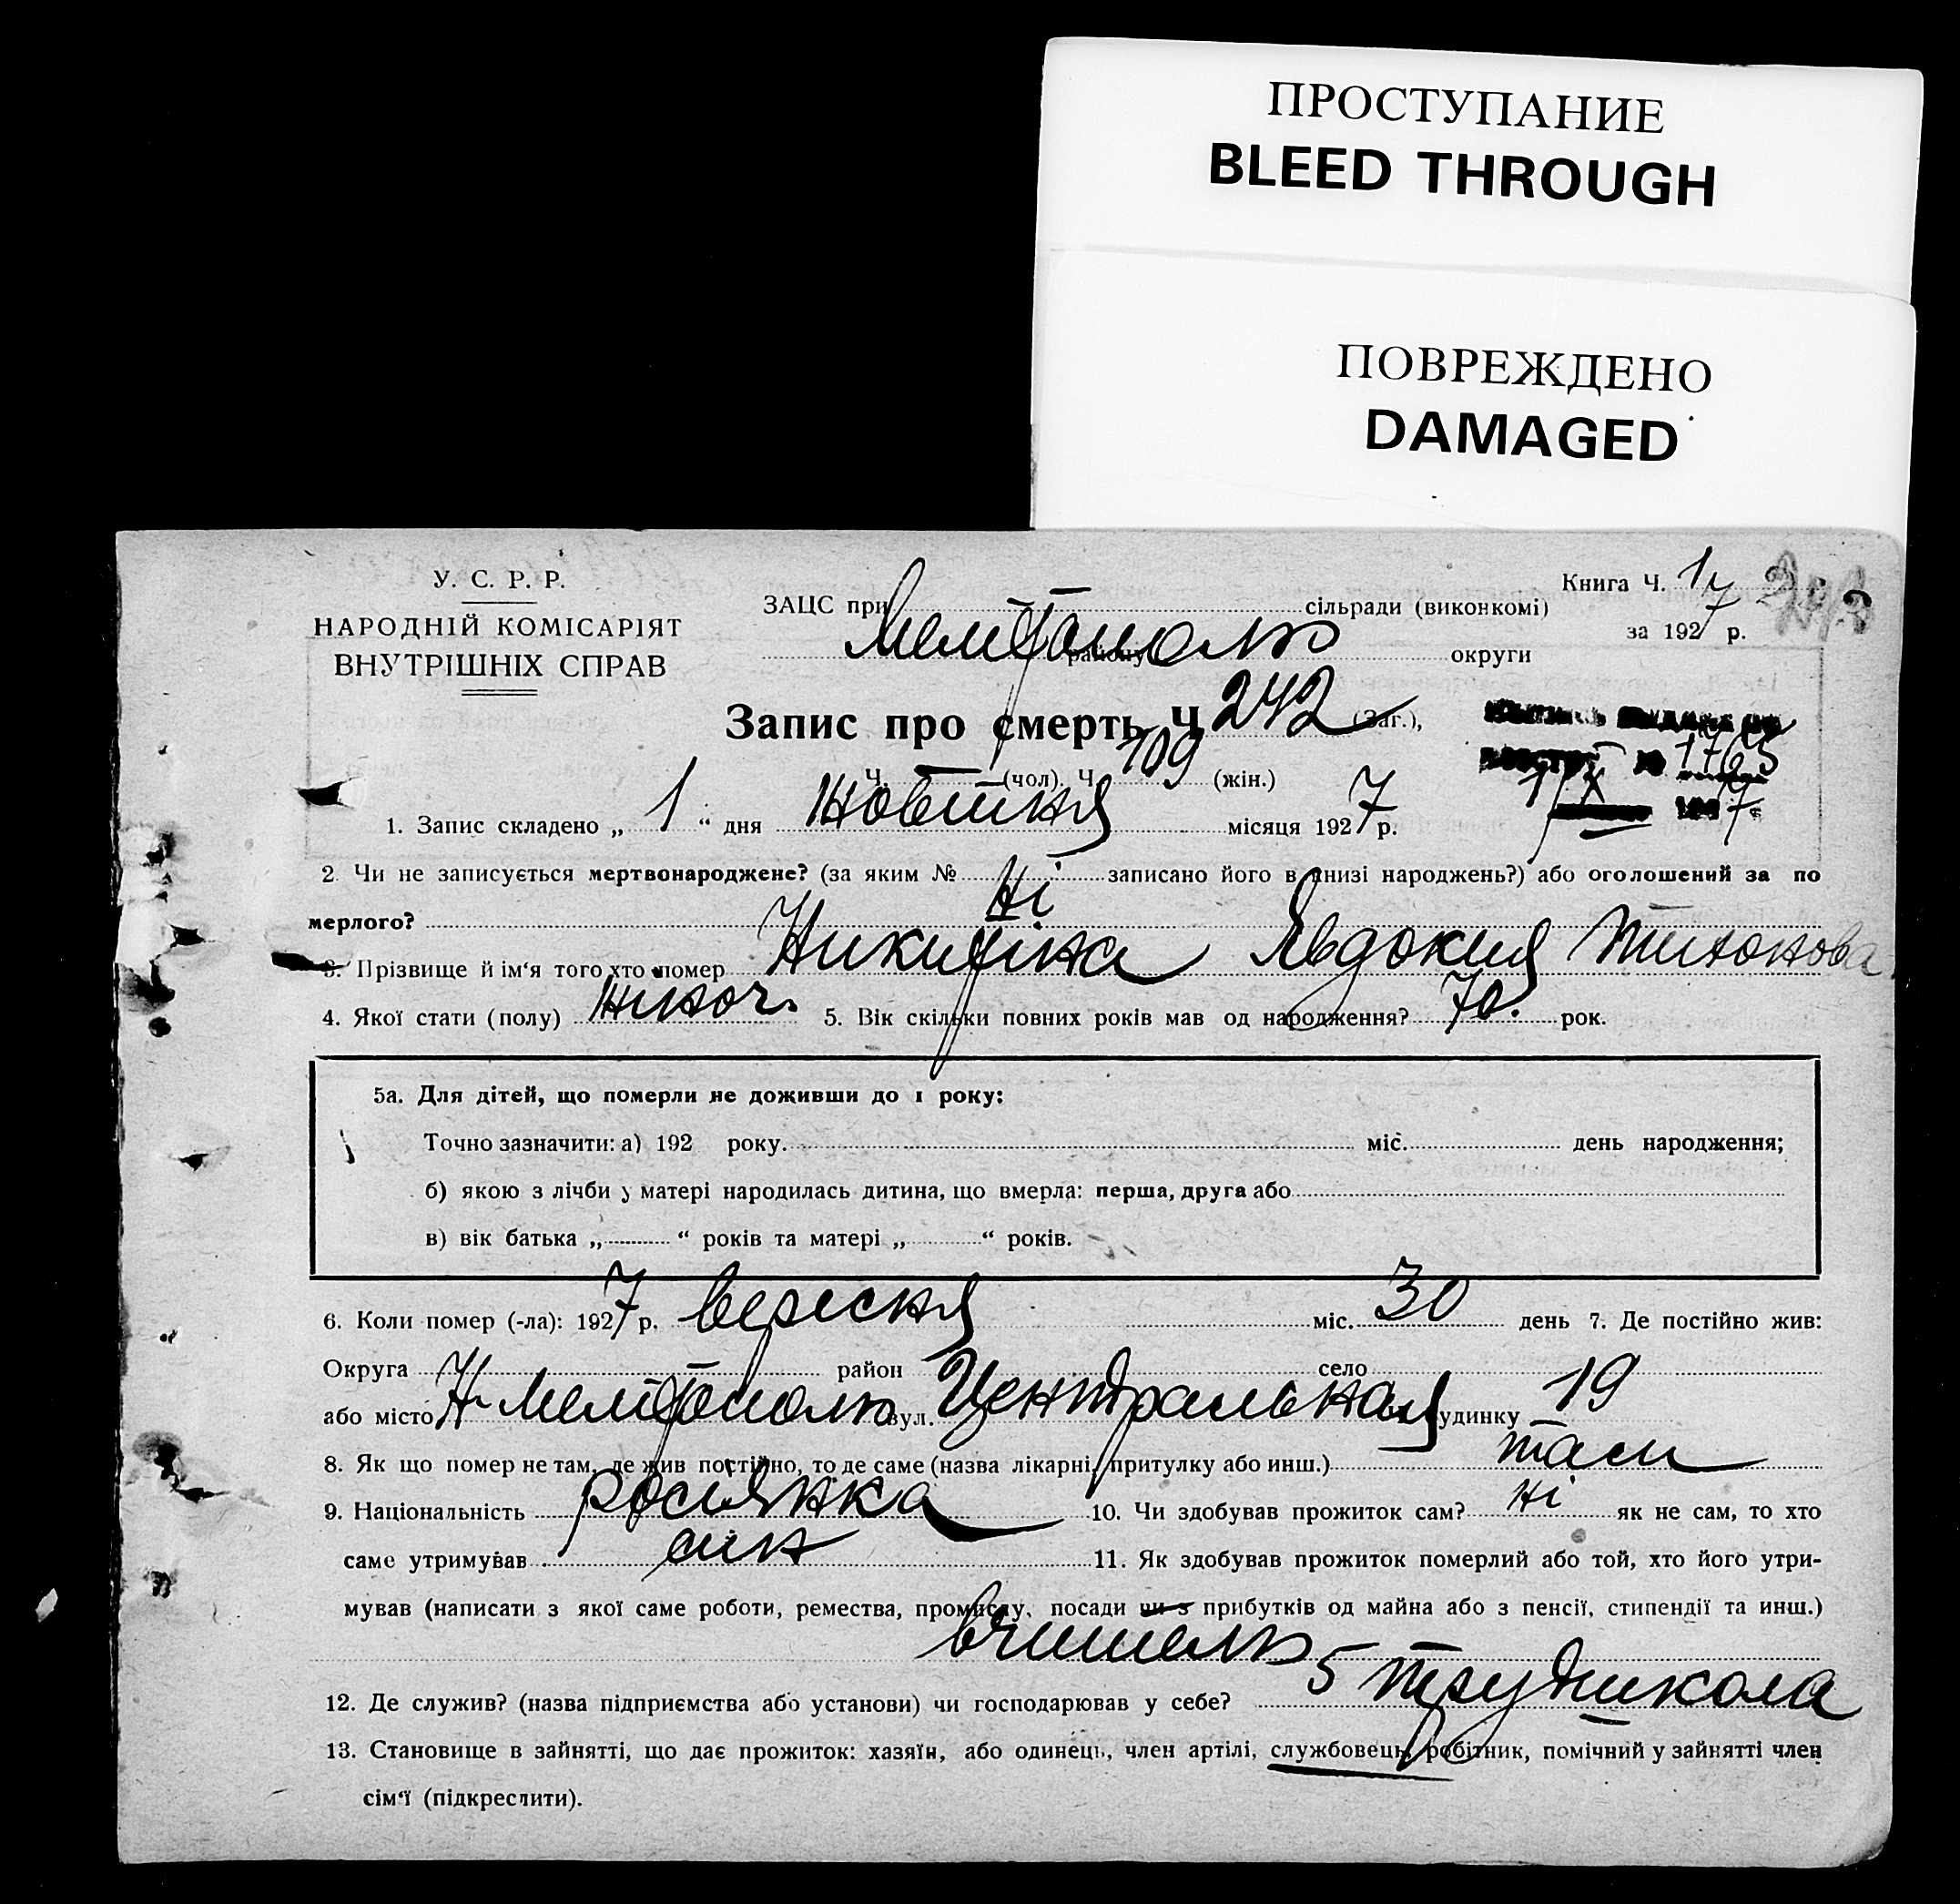 ПРОСТУПАНИЕ
BLEED THROUGH
ПОВРЕЖДЕНО
DAMAGED
У. С. Р. Р.
НАРОДНІЙ КОМІСАРІЯТ
ВНУТРІШНІХ СПРАВ
Книга Ч. 17
за 1927 р.
ЗАЦС при сільради (виконкомі)
Мелітополь
району округи
Запис про смерть Ч 242 (Заг.),
Ч. — (чол). Ч 109 (жін.)
1763
1/X 1927
1. Запис складено „ 1 “ дня жовтня місяця 1927 р.
2. Чи не записується мертвонароджене? (за яким № записано його в книзі народжень?) або оголошений за по
мерлого? Ні
3. Прізвище й ім‘я того хто помер Никитіна Явдокия Тихонова
4. Якої стати (полу) жіноч. 5. Вік скільки повних років мав од народження? 70. рок.
5а. Для дітей, що померли не доживши до 1 року:
Точно зазначити: а) 192 року. міс. день народження;
б) якою з лічби у матері народилась дитина, що вмерла: перша, друга або
в) вік батька „ “ років та матері „ “ років.
6. Коли помер (-ла): 1927 р. вересня міс. 30 день 7. Де постійно жив:
Округа район село
або місто Н-Мелітополь вул. Центральная будинку 19
8. Як що помер не там, де жив постійно, то де саме (назва лікарні, притулку або инш.) там
9. Національність росіянка 10. Чи здобував прожиток сам? ні як не сам, то хто
саме утримував син 11. Як здобував прожиток померлий або той, хто його утри-
мував (написати з якої саме роботи, ремества, промислу, посади чи з прибутків од майна або з пенсії, стипендії та инш.)
вчитель
12. Де служив? (назва підприємства або установи) чи господарював у себе? 5 трудшкола
13. Становище в зайнятті, що дає прожиток: хазяїн, або одинець, член артілі, службовець, робітник, помічний у зайнятті член
сім‘ї (підкреслити).